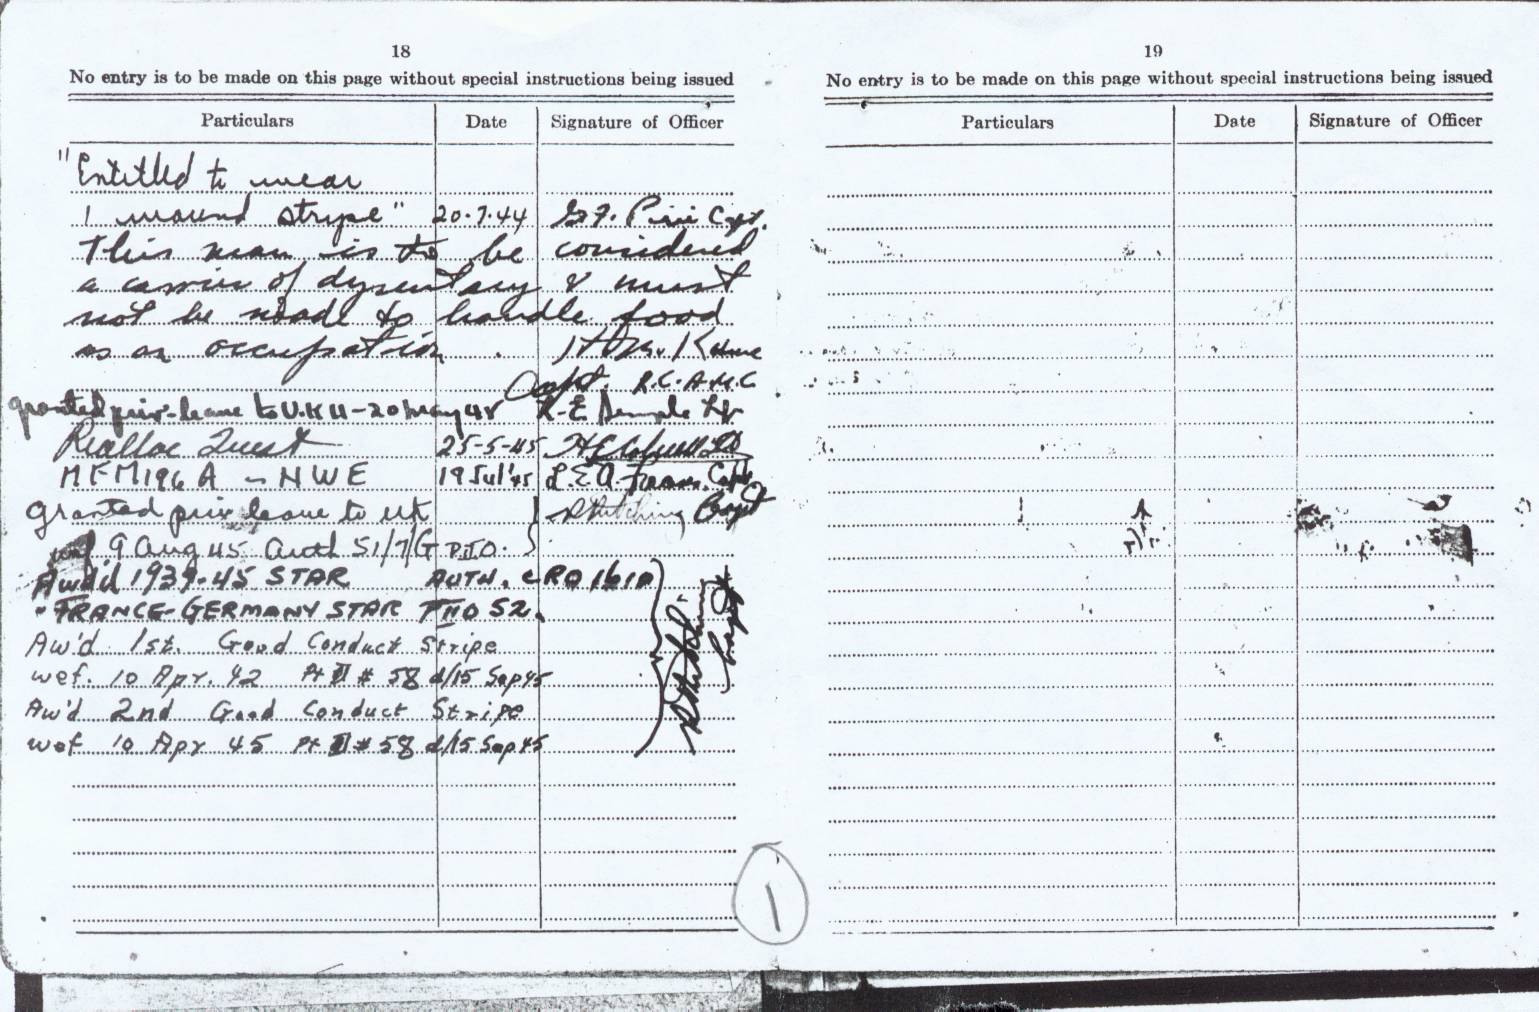 18
No entry is to be made on this page without special instructions being issued
Particulars Date Signature of Officer
"Entitled to wear
1 wound stripe" 20.7.44 G.F. Pirie Capt.
This man is to be considered
a carrier of dysentary & must
not be made to handle food
as an occupation
Capt. R.C.A.M.C
granted priv-leave to U.K 11-20 May 45
Realloc Quest 25-5-45
MFM196A - NWE 19 Jul '45 L.E.A. Capt
granted priv leave to UK Capt
wef 9 Aug 45 Auth 51/7/G PIIO.
Awd'd 1939-45 STAR AUTH. CRO 1610
" FRANCE-GERMANY STAR PIIO 52.
Aw'd 1st. Good Conduct Stripe
wef. 10 Apr. 42 Pt II # 58 d/15 Sep 45
Aw'd 2nd Good Conduct Stripe
wef 10 Apr 45 Pt II # 58 d/15 Sep 45
1
19
No entry is to be made on this page without special instructions being issued
Particulars Date Signature of Officer